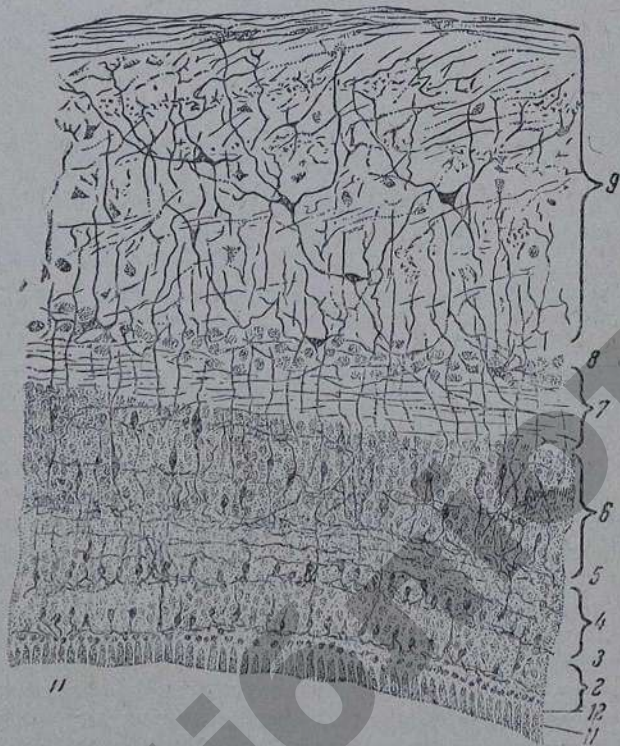 9
8
7
6
5
4
3
2
12
11
11